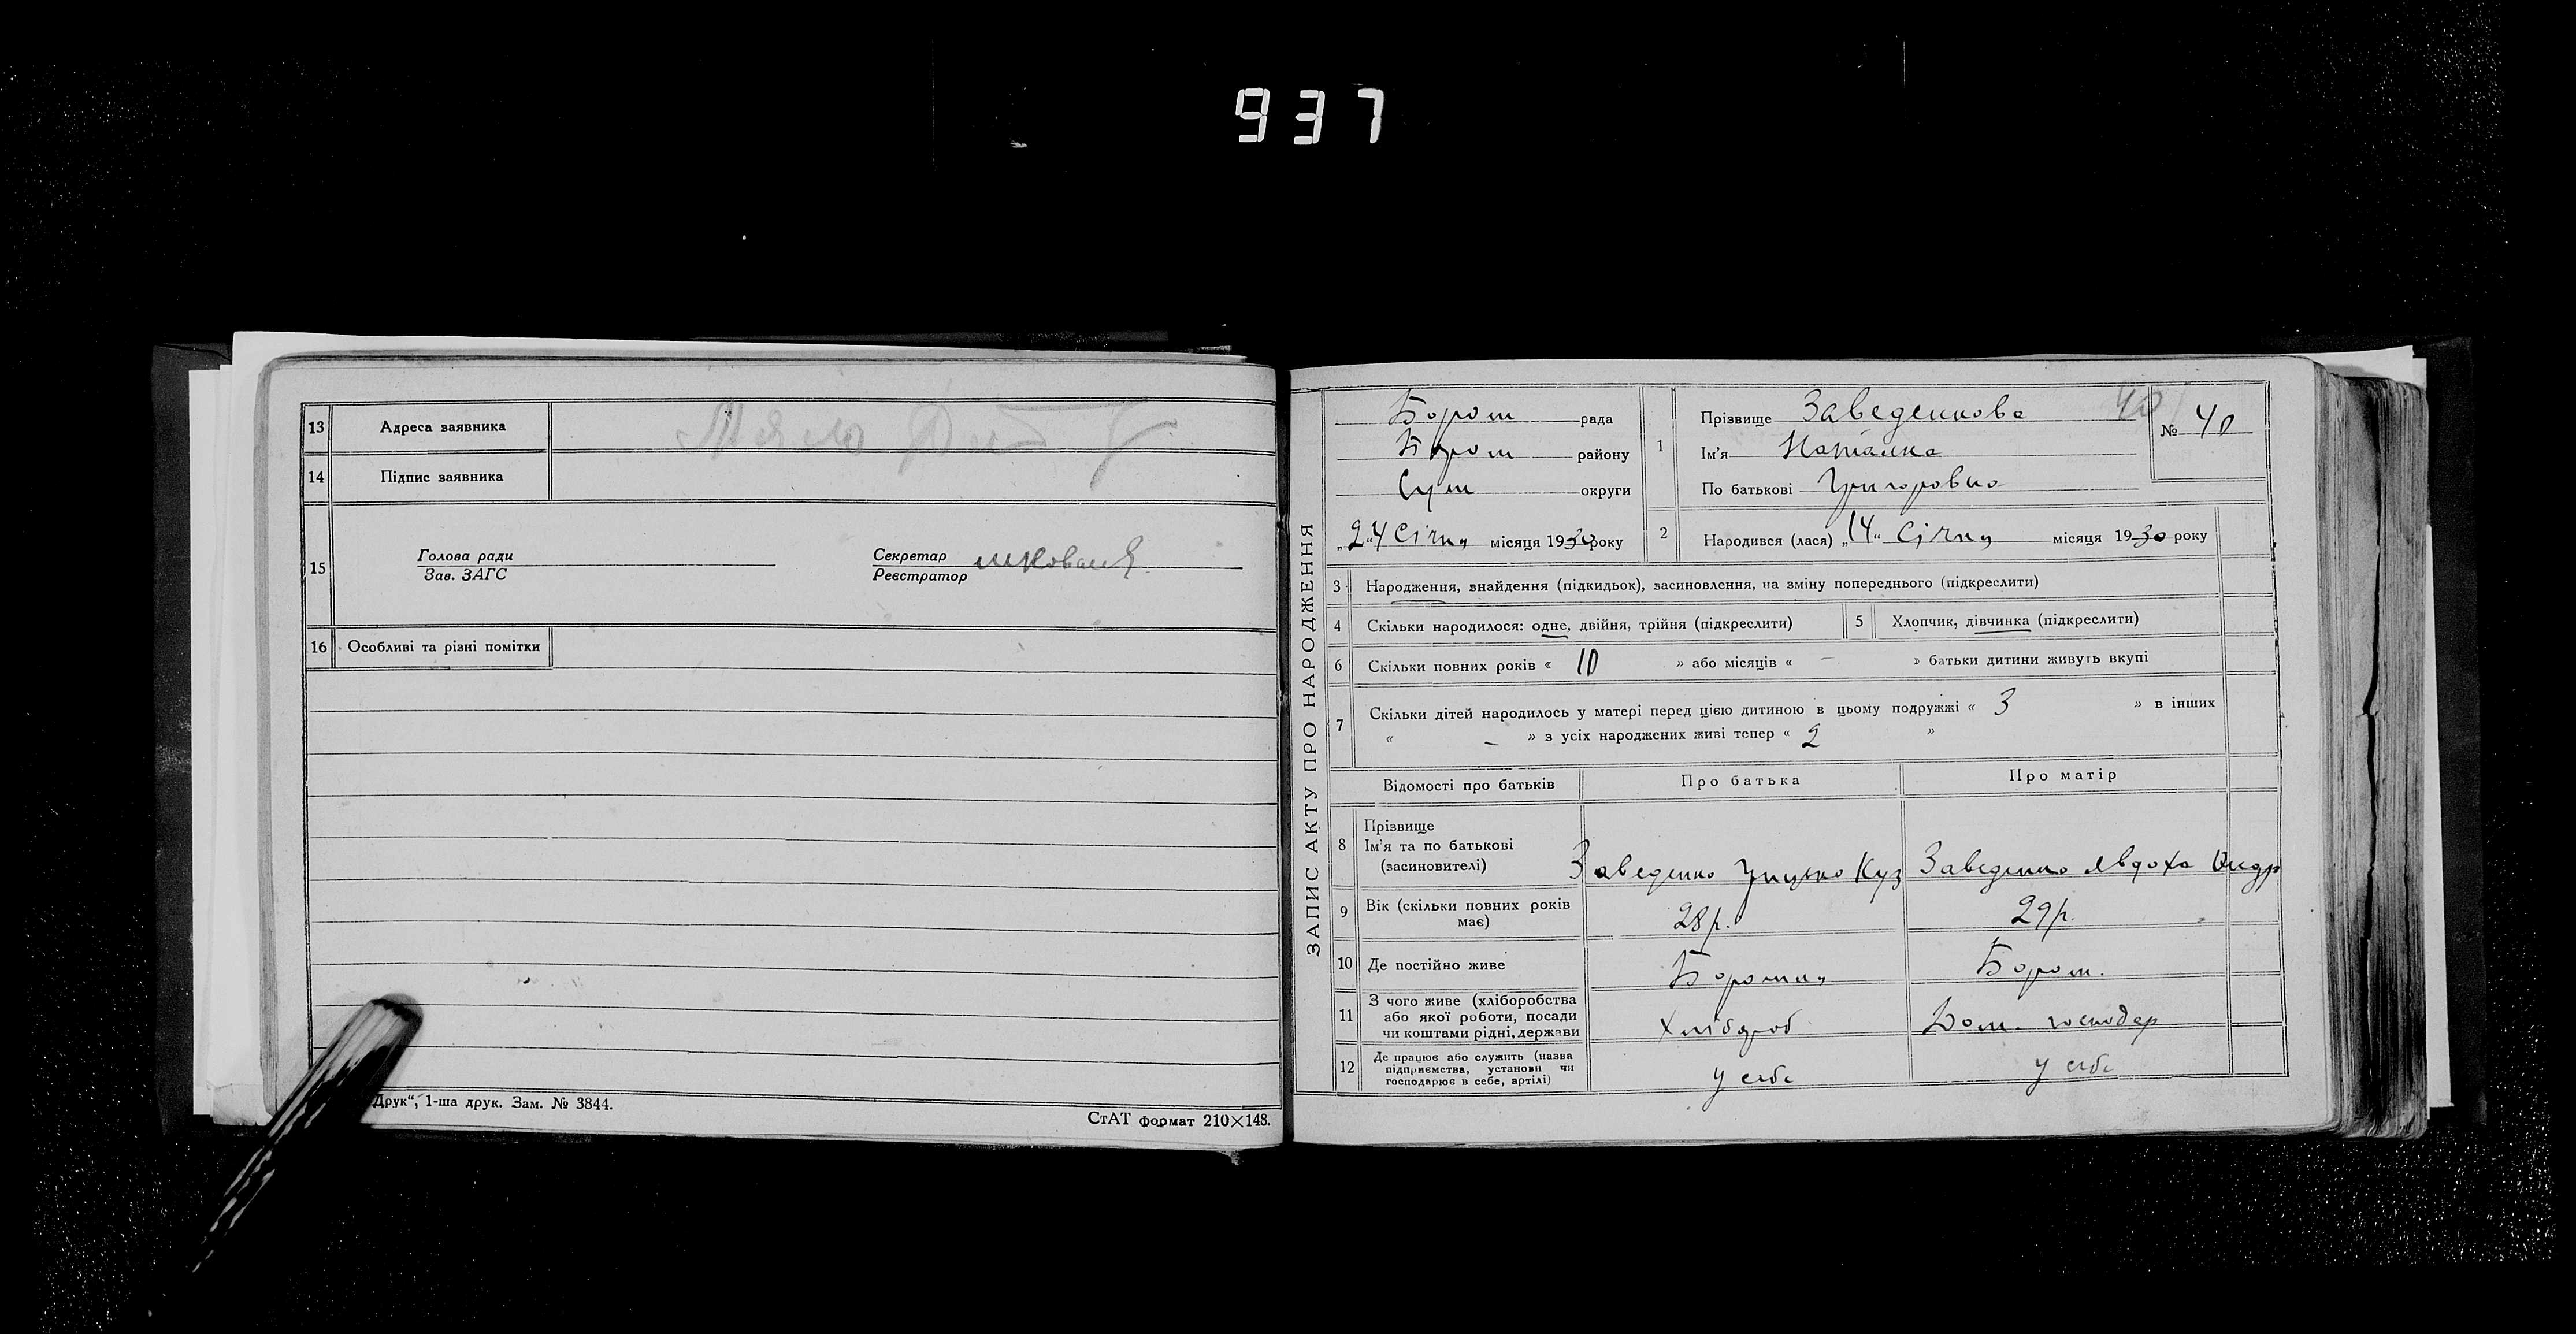 937
13 Адреса заявника
14 Підпис заявника
15 Голова ради
Зав. ЗАГС
Секретар
Реєстратор
16 Особливі та різні помітки
Друк“, 1-ша друк. Зам. № 3844.
СтАТ формат 210×148.
ЗАПИС АКТУ ПРО НАРОДЖЕННЯ
Бором рада
Бором району
Сум округи
„24“ Січня місяця 1930 року
1 Прізвище Заведенкова
Ім'я Наталка
По батькові Григоровна
40
№ 40
2 Народився (лася) „14“ Січня місяця 1930 року
3 Народження, знайдення (підкидьок), засиновлення, на зміну попереднього (підкреслити)
4 Скільки народилося: одне, двійня, трійня (підкреслити)
5 Хлопчик, дівчинка (підкреслити)
6 Скільки повних років « 10 » або місяців « — » батьки дитини живуть вкупі
7 Скільки дітей народилось у матері перед цією дитиною в цьому подружжі « 3 » в інших
« — » з усіх народжених живі тепер « 2 »
Відомості про батьків
Про батька
Про матір
8 Прізвище
Ім'я та по батькові
(засиновителі)
Заведенко Грицько Куз
Заведенко Явдоха Андр
9 Вік (скільки повних років
має)
28 р.
29 р.
10 Де постійно живе
Боромля
Бором.
11 З чого живе (хліборобства
або якої роботи, посади
чи коштами рідні, держави
Хлібороб
Дом. господар
12 Де працює або служить (назва
підприємства, установи чи
господарює в себе, артілі)
у себе
у себе